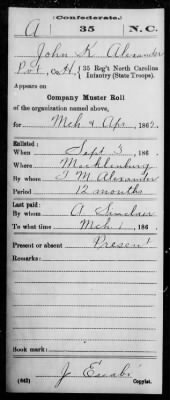 (Confederate.)
A 35 N.C.
John K Alexander
Pvt, Co. H, 35 Reg't North Carolina
Infantry (State Troops).
Appears on
Company Muster Roll
of the organization named above,
for Mch & Apr, 1862.
Enlisted:
When Sept 3, 186 .
Where Mecklenburg
By whom J M Alexander
Period 12 months
Last paid:
By whom A Sinclair
To what time Mch 1, 186 .
Present or absent Present
Remarks:
Book mark:
(642) J Copyist.